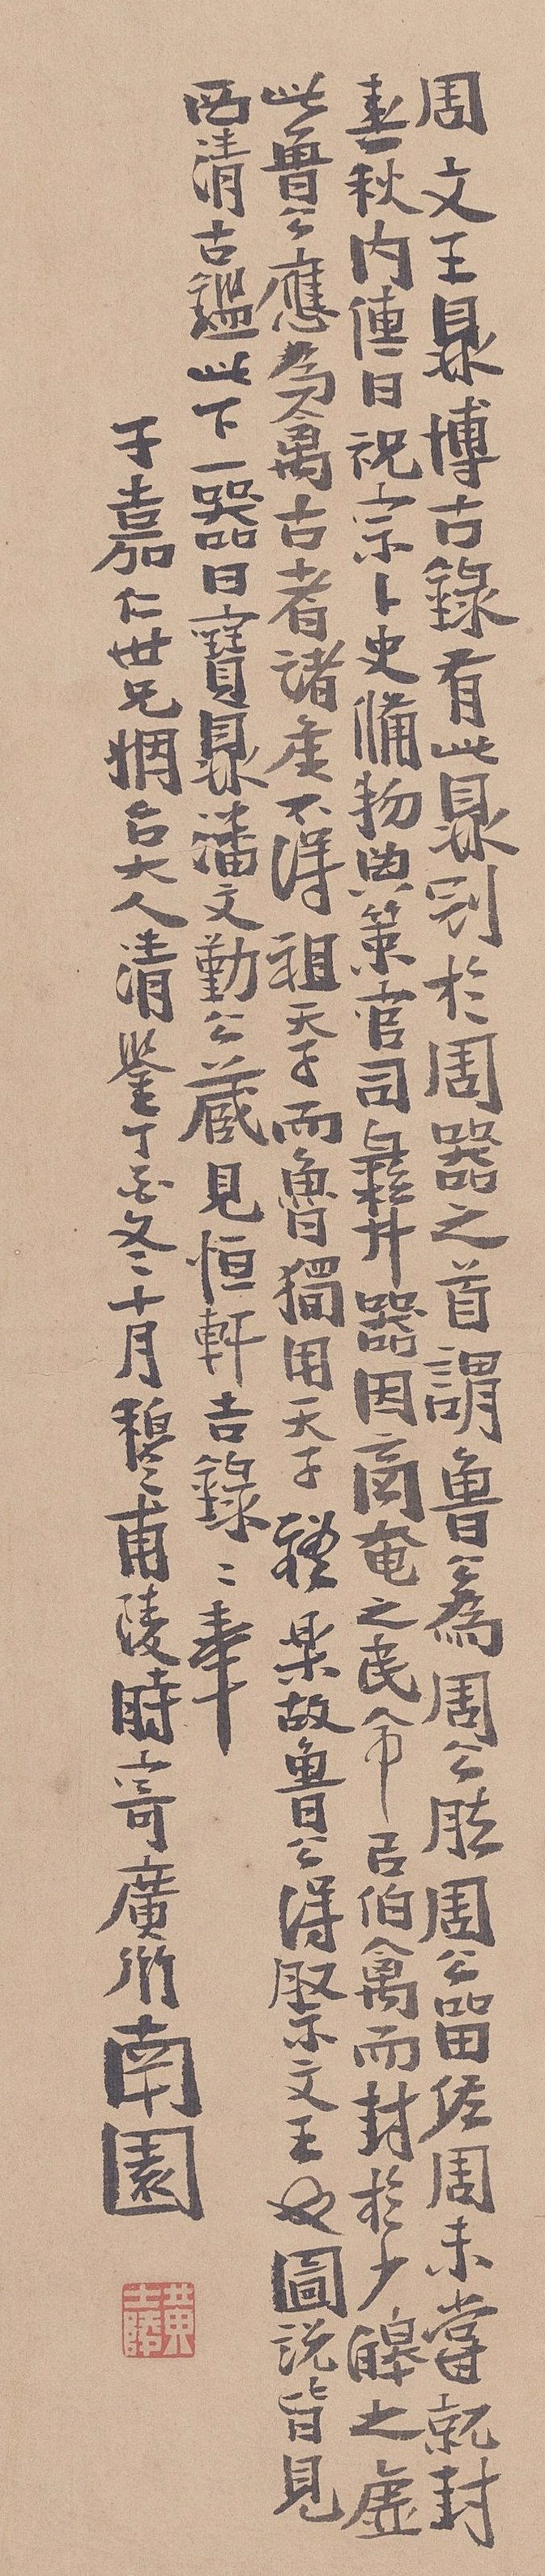 周文王鼎博古錄有此鼎列於周器之首謂魯公為周公胙周公留佐周未嘗就封
春秋內傳曰祝宗卜史備物典策官司彝器因商奄之民命㠯伯禽而封於少皞之虛
此魯公應為伯禽古者諸侯不得祖天子而魯獨用天子禮樂故魯公得祭文王也圖說皆見
西清古鑑此下一器曰寶鼎潘文勤公藏見恒軒吉錄奉
子嘉仁世兄姻台大人清鑒丁酉冬十月穆甫陵時寄廣州南園
黃士陵